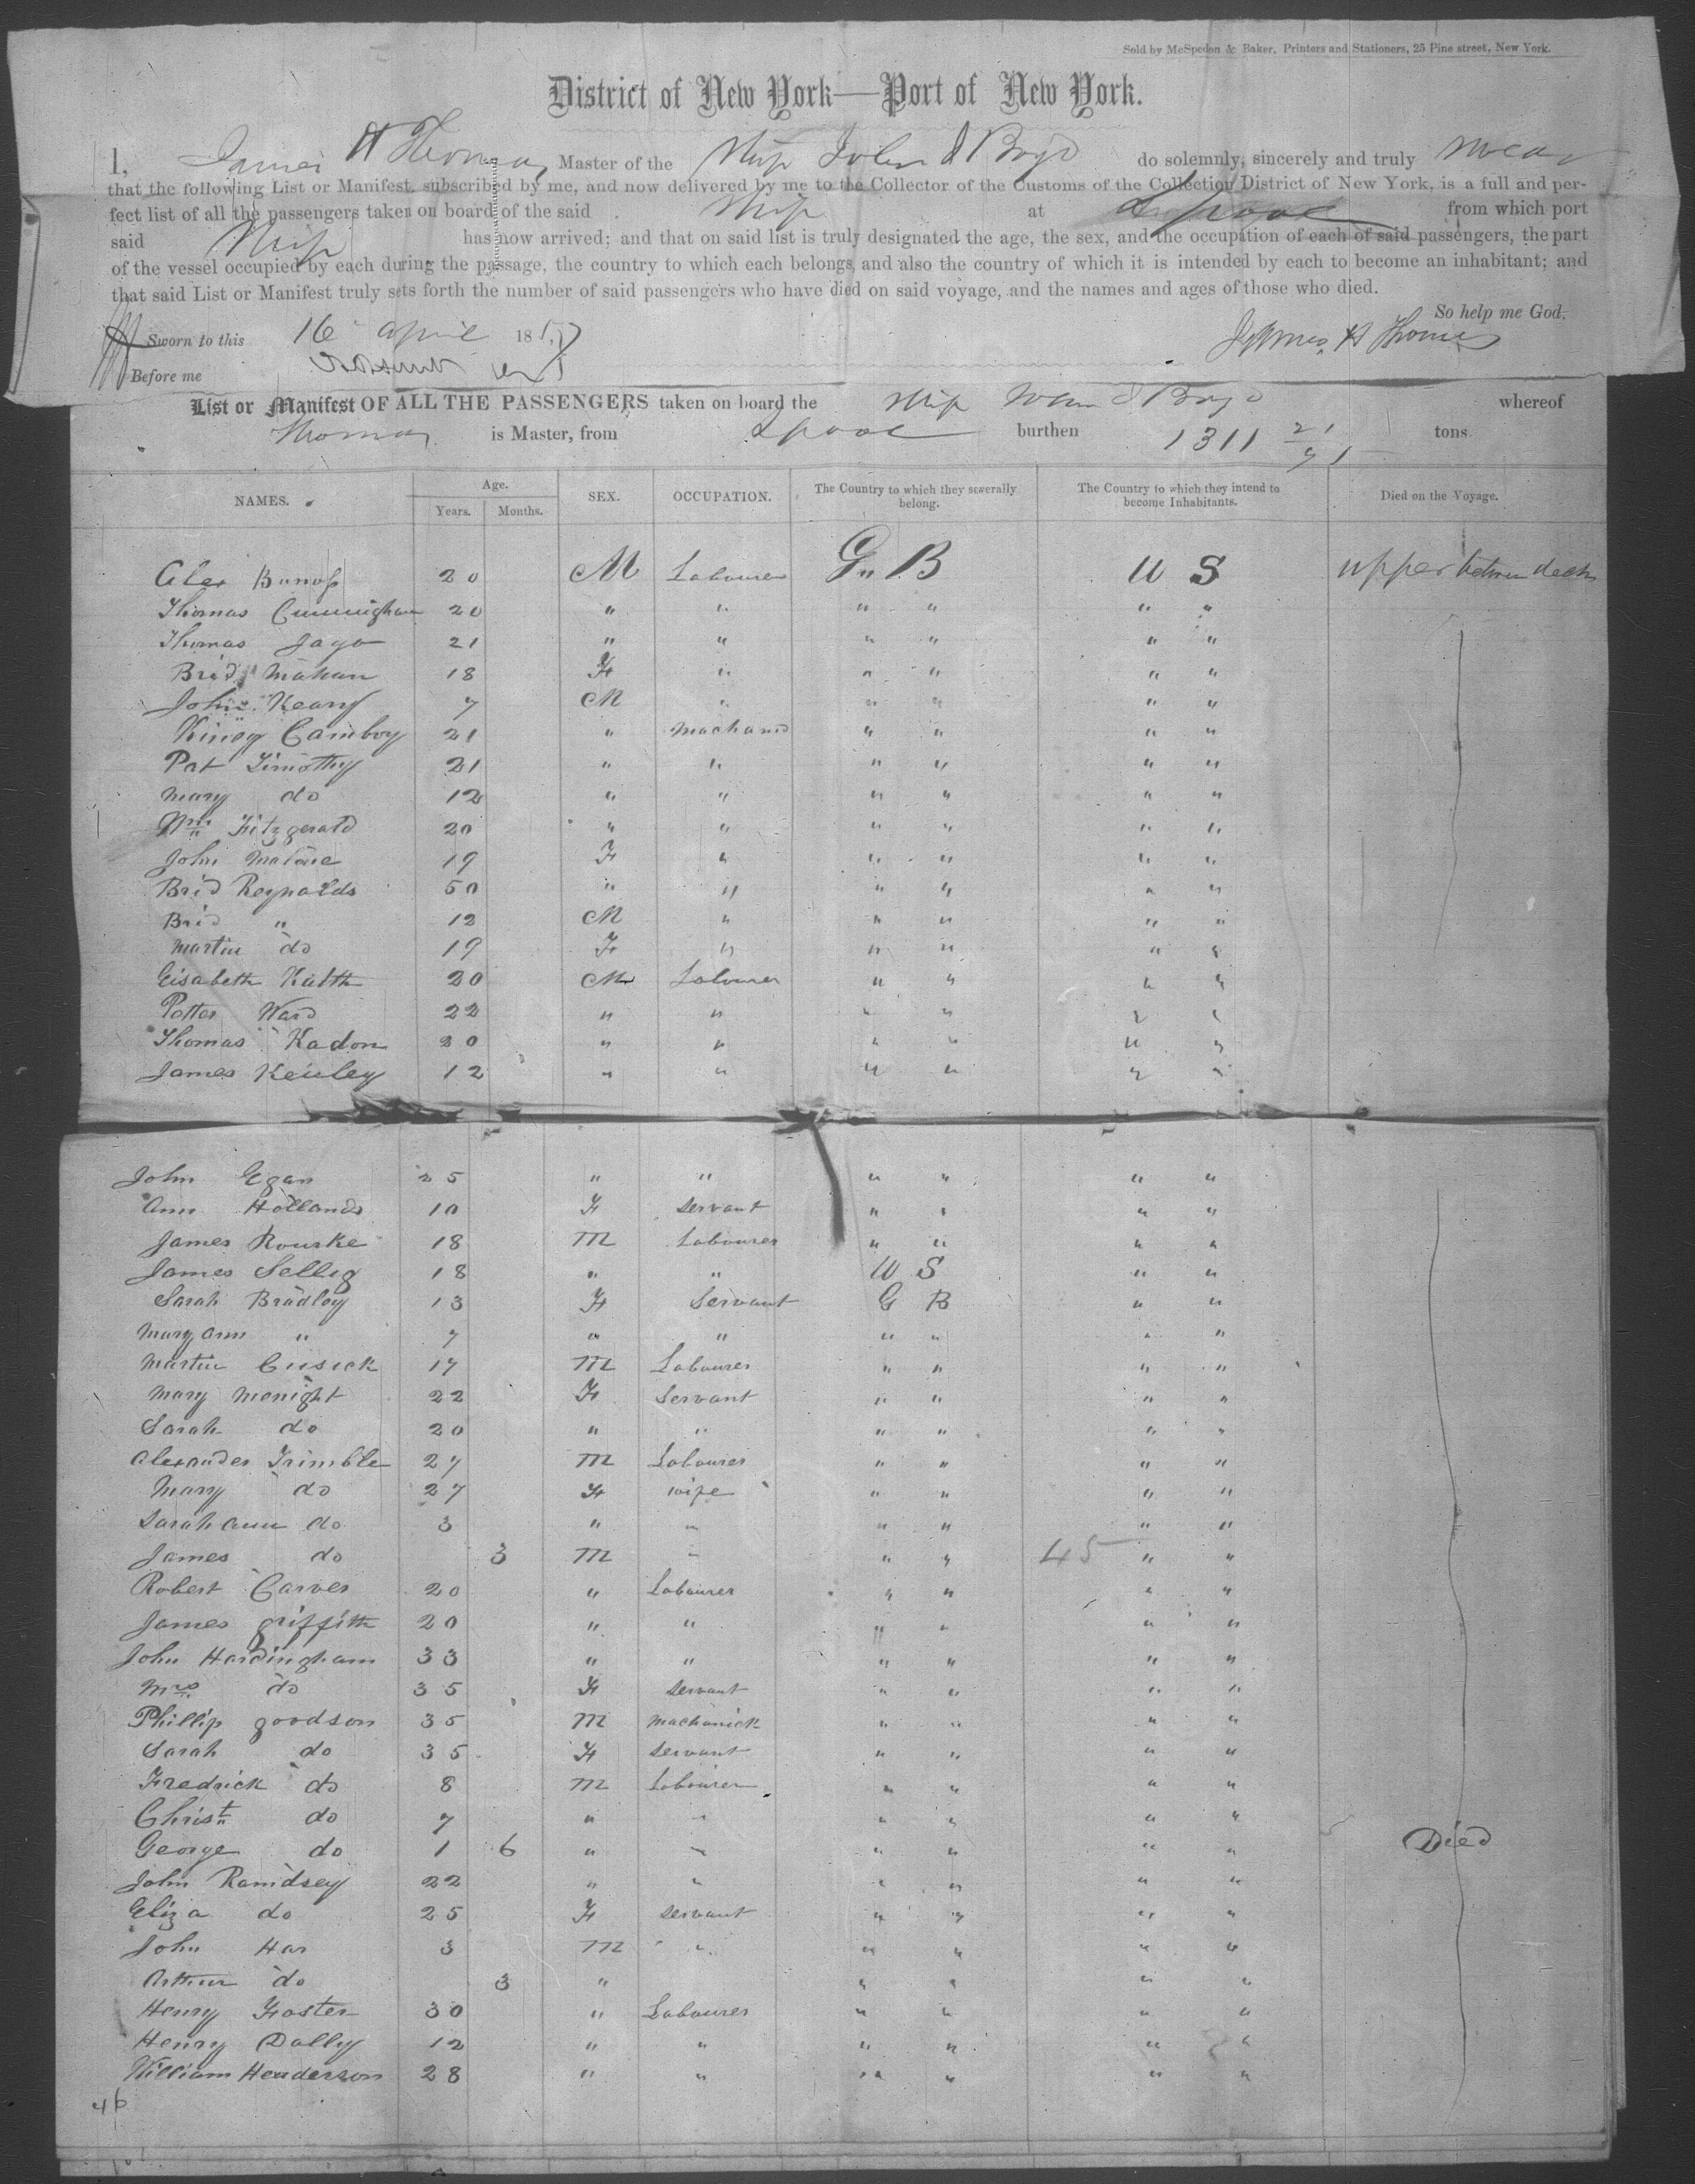 Sold by McSpedon & Baker, Printers and Stationers, 25 Pine street, New York.
District of New York—Port of New York.
I, James H Thomas Master of the Ship John J Boyd do solemnly, sincerely and truly swear
that the following List or Manifest, subscribed by me, and now delivered by me to the Collector of the Customs of the Collection District of New York, is a full and per-
fect list of all the passengers taken on board of the said Ship at Lpool from which port
said Ship has now arrived; and that on said list is truly designated the age, the sex, and the occupation of each of said passengers, the part
of the vessel occupied by each during the passage, the country to which each belongs, and also the country of which it is intended by each to become an inhabitant; and
that said List or Manifest truly sets forth the number of said passengers who have died on said voyage, and the names and ages of those who died.
So help me God.
Sworn to this 16 April 185 James H Thomas
Before me
List or Manifest OF ALL THE PASSENGERS taken on board the Ship John J Boyd whereof
Thomas is Master, from Lpool burthen 1311 21/91 tons
NAMES. Age. Years. Months. SEX. OCCUPATION. The Country to which they severally belong. The Country to which they intend to become Inhabitants. Died on the Voyage.
Alex 20 M Labourer G" B U S upper between decks
Thomas Cunningham 20 " " " " " "
Thomas Jago 21 " " " " " "
Brid Mahan 18 F " " " " "
John Keary 7 M " " " " "
21 " " " " "
Pat Timothy 21 " " " " " "
Mary do 12 " " " " " "
Fitzgerald 20 " " " " " "
John Malone 19 F " " " " "
Brid Reynalds 50 " " " " " "
Brid " 12 M " " " " "
Martin do 19 F " " " " "
Elsabeth 20 M Labourer " " " "
Potter Ward 22 " " " " " "
Thomas Kadon 20 " " " " " "
James Kenley 12 " " " " " "
John Egan 25 " " " " " "
Ann Hollands 10 F Servant " " " "
James Rourke 18 M Labourer " " " "
James Sellig 18 " " U S " "
Sarah Bradley 13 F Servant G B " "
Mary Ann " 7 " " " " " "
Martin Cusick 17 M Labourer " " " "
Mary Menight 22 F Servant " " " "
Sarah do 20 " " " " " "
Alexander Trimble 27 M Labourer " " " "
Mary do 27 F wife " " " "
Sarah Ann do 3 " " " " " "
James do 3 M " " " 45 " "
Robert Carver 20 " Labourer " " " "
James Griffith 20 " " " " " "
John Hardingham 33 " " " " " "
Mrs do 35 F Servant " " " "
Phillip Goodson 35 M Machanick " " " "
Sarah do 35 F Servant " " " "
Fredrick do 8 M Labourer " " " "
Christ do 7 " " " " " "
George do 1 6 " " " " " " Died
John Ramdsey 22 " " " " " "
Eliza do 25 F Servant " " " "
John Har 3 M " " " " "
Arthur do 3 " " " " "
Henry Foster 30 " Labourer " " " "
Henry Dally 12 " " " " " "
William Henderson 28 " " " " " "
46